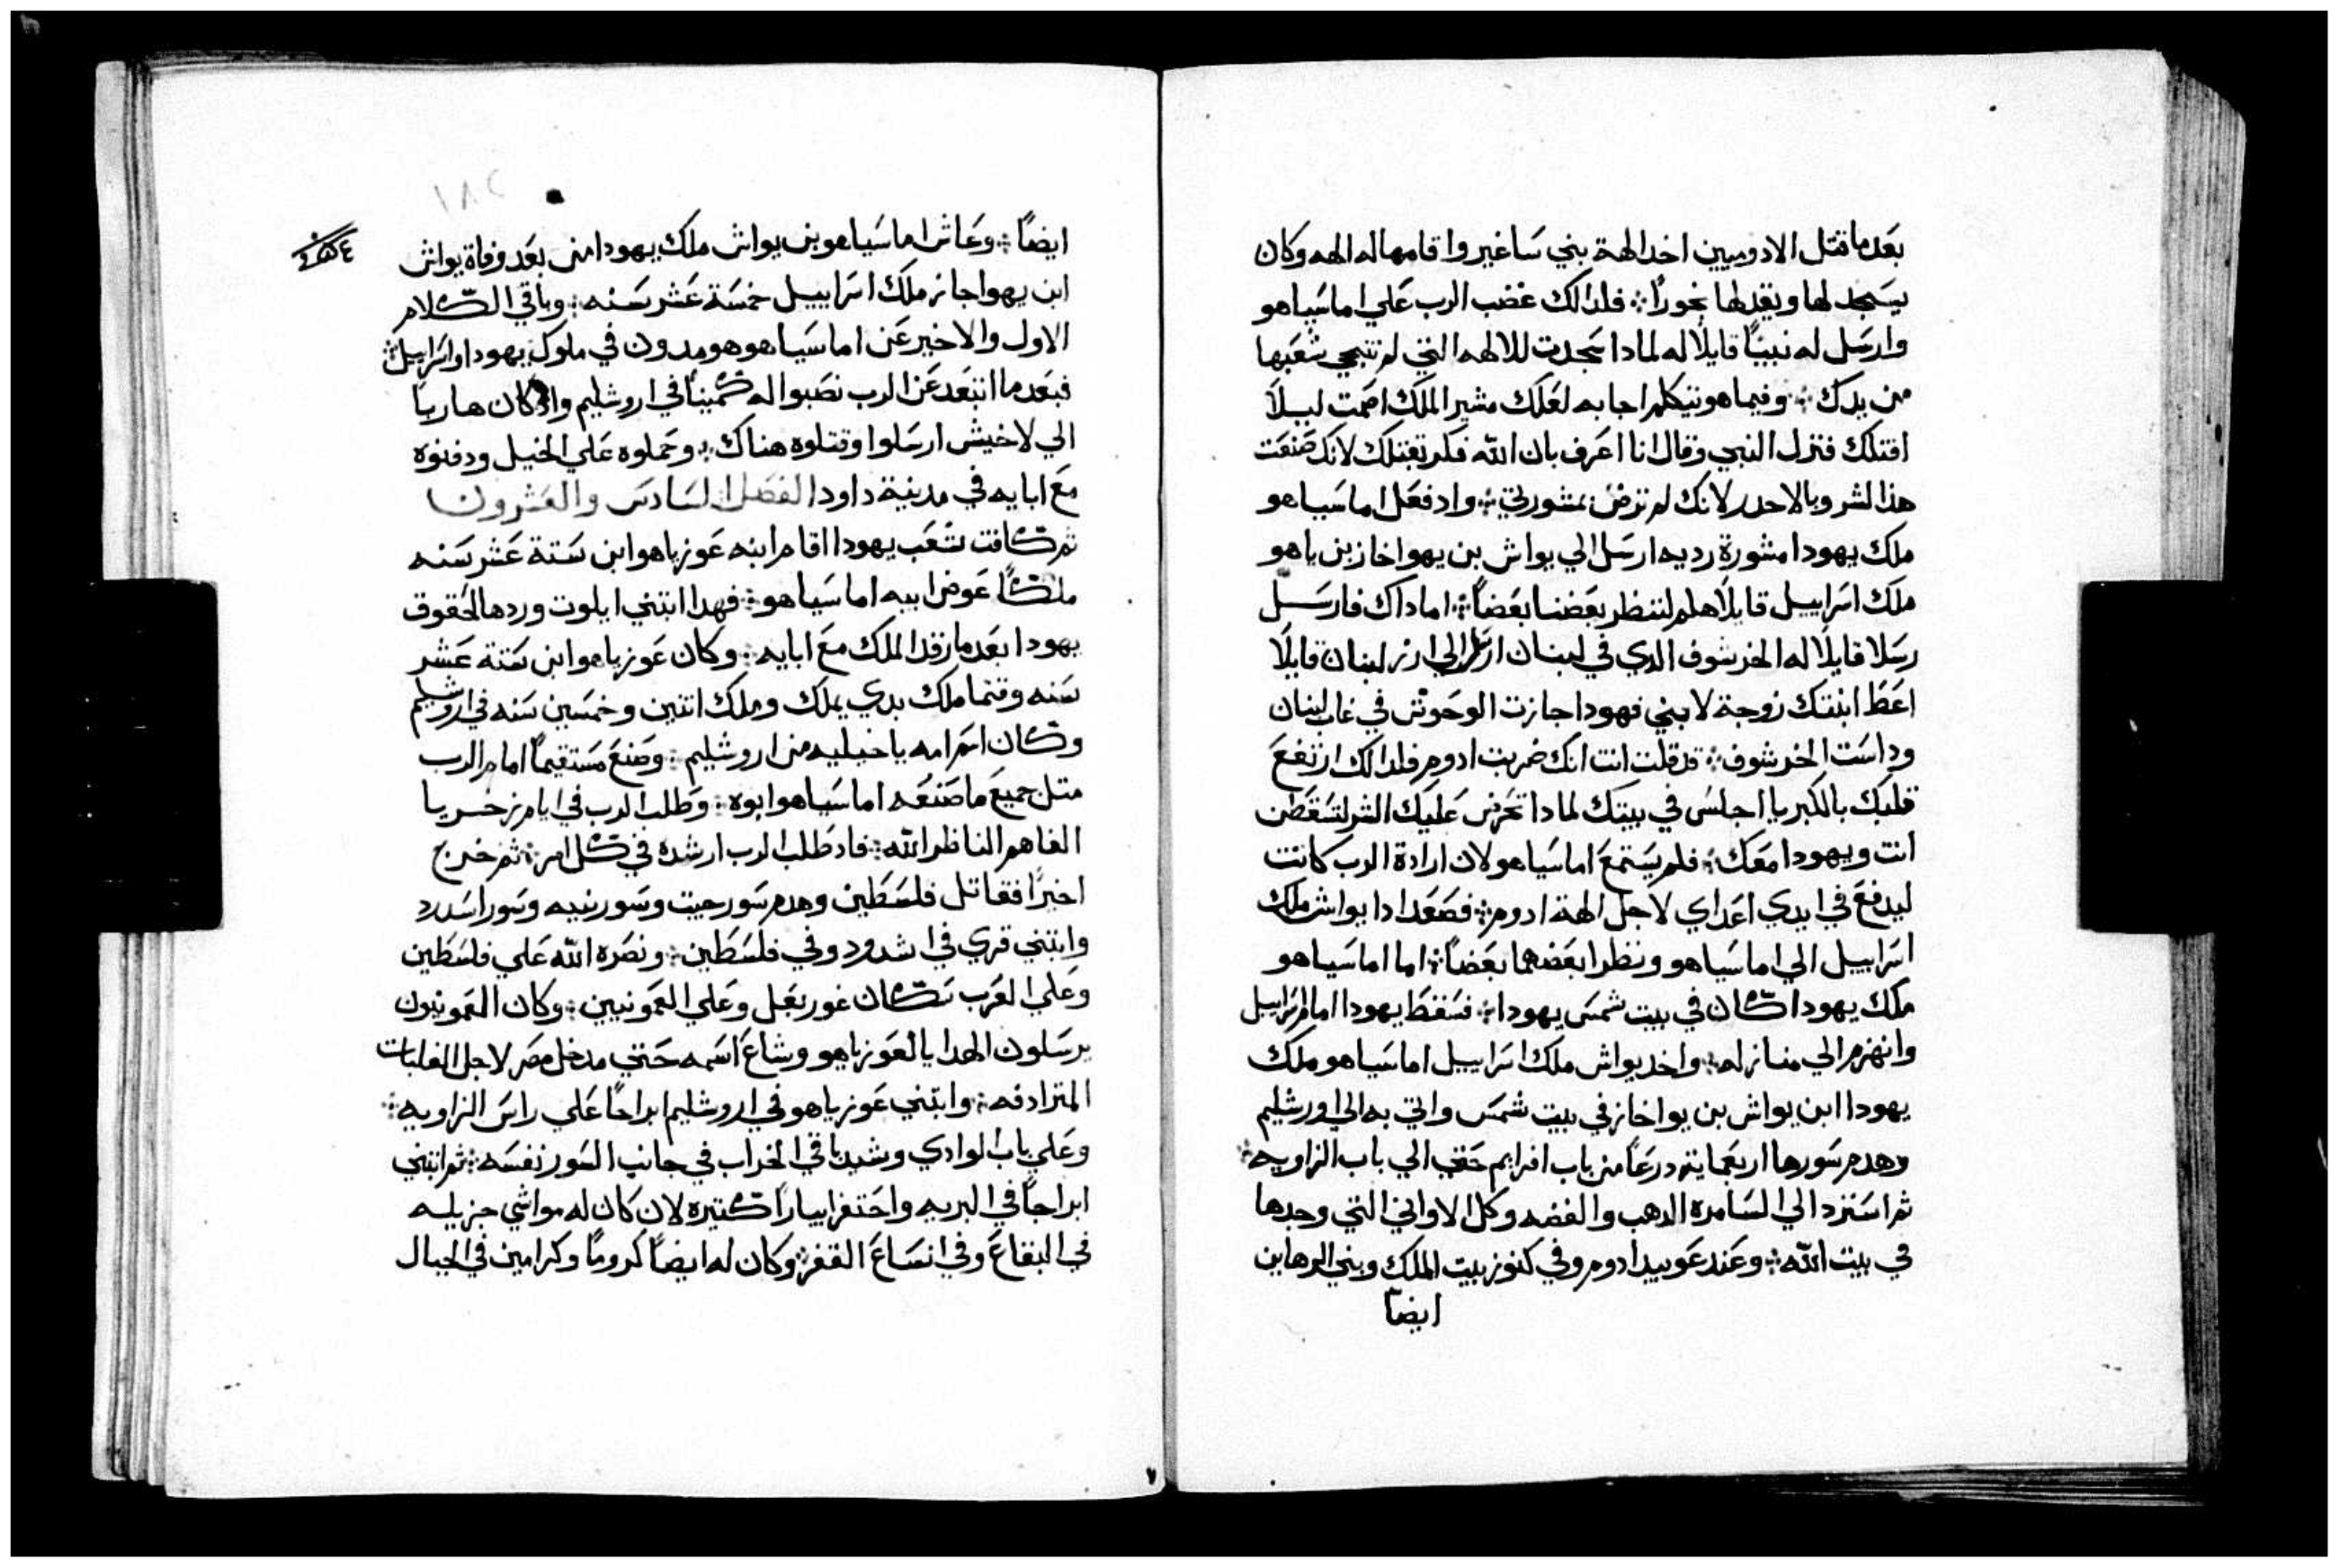 بعد ما قتل الادوميين اخد الهة بني ساغير واقامها له الهه وكان
يسجد لها ويقد لها بخوراً فلدالك غضب الرب علي اماسياهو
وارسل له نبيّاً قايلاً له لمادا سجدت للالهه التي لم تنجي شعبها
من يدك وفيما هو يتكلم اجابه لعلك مشير الملك اصمت ليلا
اقتلك فنزل النبي وقال انا اعرف بان الله فكر بقتلك لانك صنعت
هذا الشر وبالاحدر لانك لم ترض بمشورتي واد فعل اماسياهو
ملك يهودا مشورة رديه ارسل الي يواش بن يهواخاز بن ياهو
ملك اسراييل قايلاً هلم لننظر بعضنا بعضاً اما داك فارسل
رسلا قايلاً له الخرشوف الدي في لبنان ارسل الي ارز لبنان قايلاً
اعط ابنتك زوجة لابني فهودا جازت الوحوش في غاب لبنان
وداست الخرشوف قد قلت انت انك ضربت ادوم فلدالك ارتفع
قلبك بالكبريا اجلس في بيتك لمادا تحرض عليك الشر لتسقطن
انت ويهودا معك فلم يستمع اماسياهو لان ارادة الرب كانت
ليدفع في ايدي اعداي لاجل الهة ادوم فصعد ادا يواش ملك
اسراييل الي اماسياهو ونظرا بعضهما بعضاً اما اماسياهو
ملك يهودا كان في بيت شمس يهودا فسقط يهودا امام اسراييل
وانهزم الي منازله واخد يواش ملك اسراييل اماسياهو ملك
يهودا ابن يواش بن يواخاز في بيت شمس واتي به الي اورشليم
وهدم سورها اربعماية درعاً من باب افرايم حتي الي باب الزاويه
ثم استرد الي السامره الدهب والفضه وكل الاواني التي وجدها
في بيت الله وعند عوبيد ادوم وفي كنوز بيت الملك وبني الرهاين
ايضاً
ايضاً وعاش اماسياهو بن يواش ملك يهودا من بعد وفاة يواش
ابن يهواحاز ملك اسراييل خمسة عشر سنه وباقي الكلام
الاول والاخير عن اماسياهو هو مدون في ملوك يهودا واسراييل
فبعد ما ابتعد عن الرب نصبوا له كميناً في اروشليم واد كان هارباً
الي لاخيش ارسلوا وقتلوه هناك وحملوه علي الخيل ودفنوه
مع ابايه في مدينة داود الفصل السادس والعشرون
ثم كافت شعب يهودا اقام ابنه عوزياهو ابن ستة عشر سنه
ملكاً عوض ابيه اماسياهو فهدا ابتني ايلوت وردها لحقوق
يهودا بعد ما رقد الملك مع ابايه وكان عوزياهو ابن ستة عشر
سنه وقتما ملك بدي يملك وملك اتنين وخمسين سنه في اروشليم
وكان اسم امه ياخيليه من اروشليم وصنع مستقيماً امام الرب
متل جميع ما صنعه اماسياهو ابوه وطلب الرب في ايام زخريا
الفاهم الناظر الله فاد طلب الرب ارشده في كل امر ثم خرج
اخيراً فقاتل فلسطين وهدم سور جيت وسور نبيه وسور اسدد
وابتني قري في اشدود وفي فلسطين ونصره الله علي فلسطين
وعلي العرب سكان غور بعل وعلي العمونيين وكان العمونيون
يرسلون الهدايا لعوزياهو وشاع اسمه حتي مدخل مصر لاجل الغلبات
المترادفه وابتني عوزياهو في اروشليم ابراجاً علي راس الزاويه
وعلي باب الوادي وشيد باقي الخراب في جانب السور نفسه ثم ابتني
ابراجاً في البريه واحتفر ابياراً كتيره لان كان له مواشي جزيله
في البقاع وفي اتساع القفر وكان له ايضاً كروماً وكرامين في الجبال
١٨٢